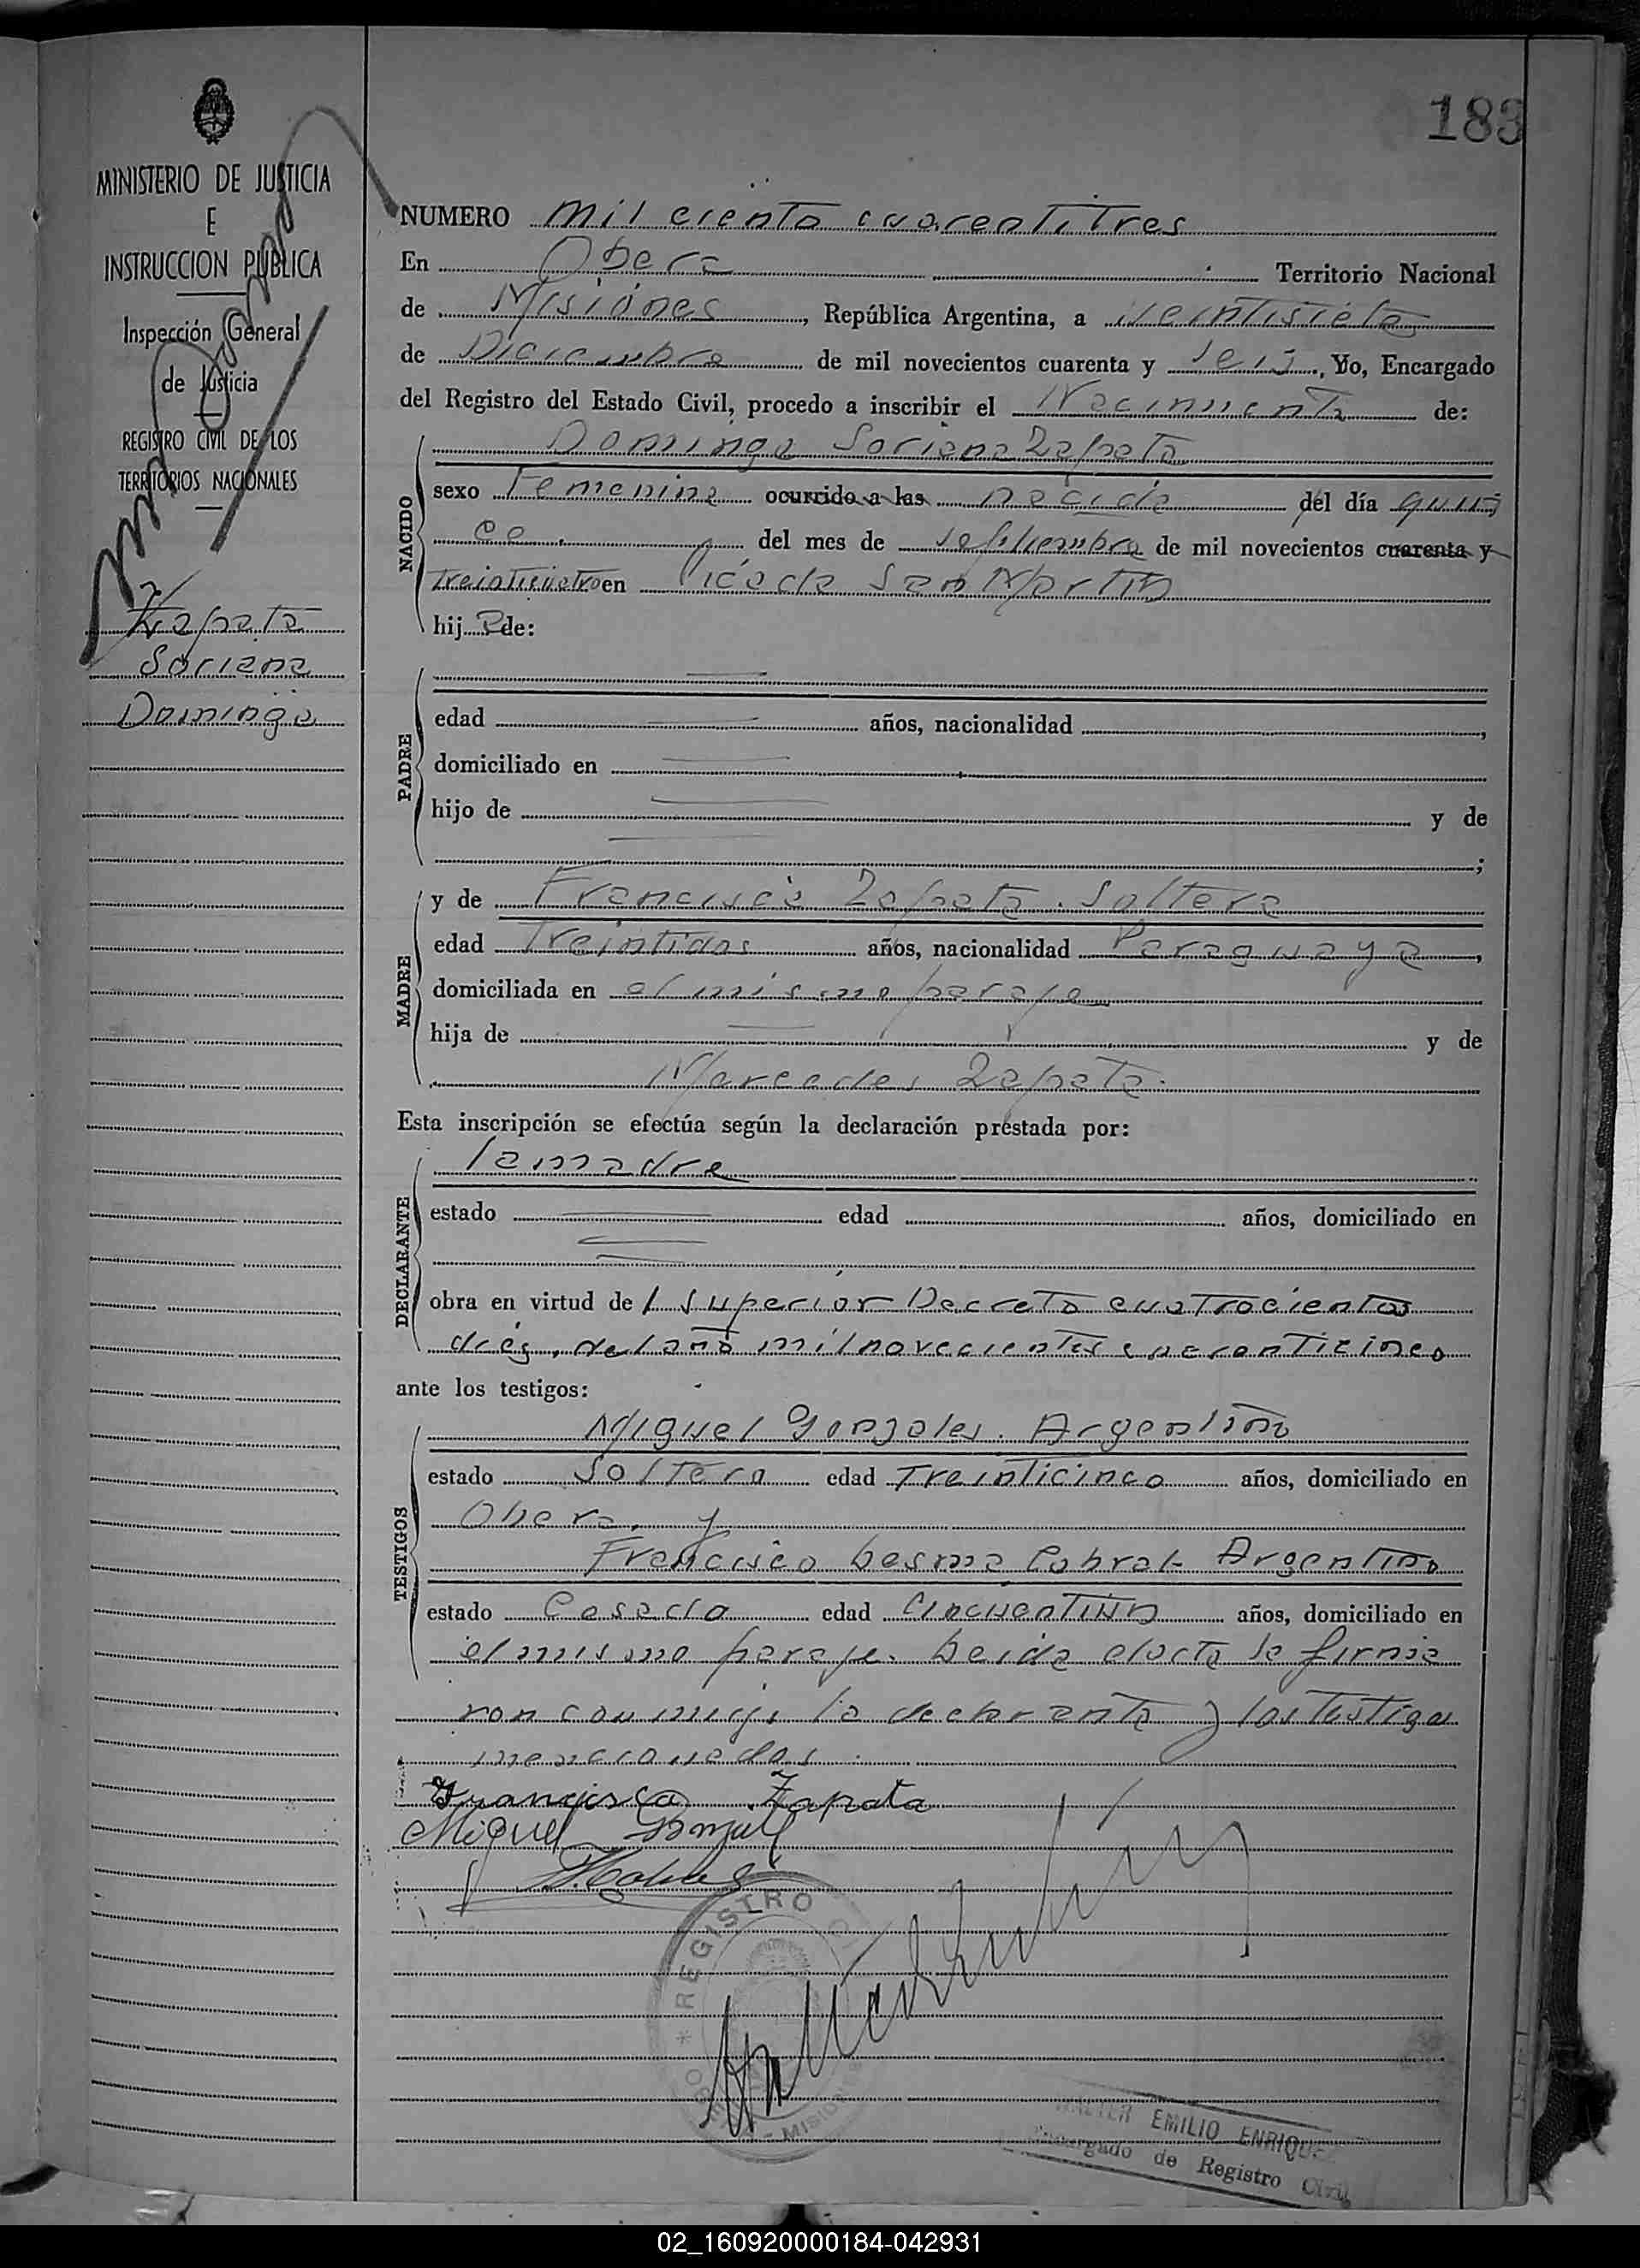 183
MINISTERIO DE JUSTICIA
E
INSTRUCCION PUBLICA
Inspección General
de Justicia
REGISTRO CIVIL DE LOS
TERRITORIOS NACIONALES
Zapata
Soriana
Dominga
NUMERO mil ciento cuarentitres
En Obera Territorio Nacional
de Misiones, República Argentina, a veintisiete
de Diciembre de mil novecientos cuarenta y seis, Yo, Encargado
del Registro del Estado Civil, procedo a inscribir el Nacimiento de:
NACIDO
Dominga Soriana Zapata
sexo Femenino ocurrido a las nacida del día quin
ce del mes de septiembre de mil novecientos cuarenta y
treinticuatro en Picada San Martin
hija de:
PADRE
edad años, nacionalidad ,
domiciliado en
hijo de y de
;
MADRE
y de Francisca Zapata. Soltera
edad Treintidos años, nacionalidad Paraguaya,
domiciliada en el mismo paraje
hija de y de
Mercedes Zapata.
Esta inscripción se efectúa según la declaración prestada por:
DECLARANTE
la madre
estado edad años, domiciliado en
obra en virtud del Superior Decreto cuatrocientos
diez, del año mil novecientos cuarenticinco
ante los testigos:
TESTIGOS
Miguel Gonzales. Argentino
estado Soltero edad Treinticinco años, domiciliado en
Obera. y
Francisco Cabral. Argentino
estado Casado edad Cincuentiun años, domiciliado en
el mismo paraje. Leida el acta la firma
ron conmigo la declarante y los testigos
mencionados.
Francisca Zapata
Miguel
REGISTRO
MISIONES
WALTER EMILIO ENRIQUEZ
Encargado de Registro Civil
02_160920000184-042931